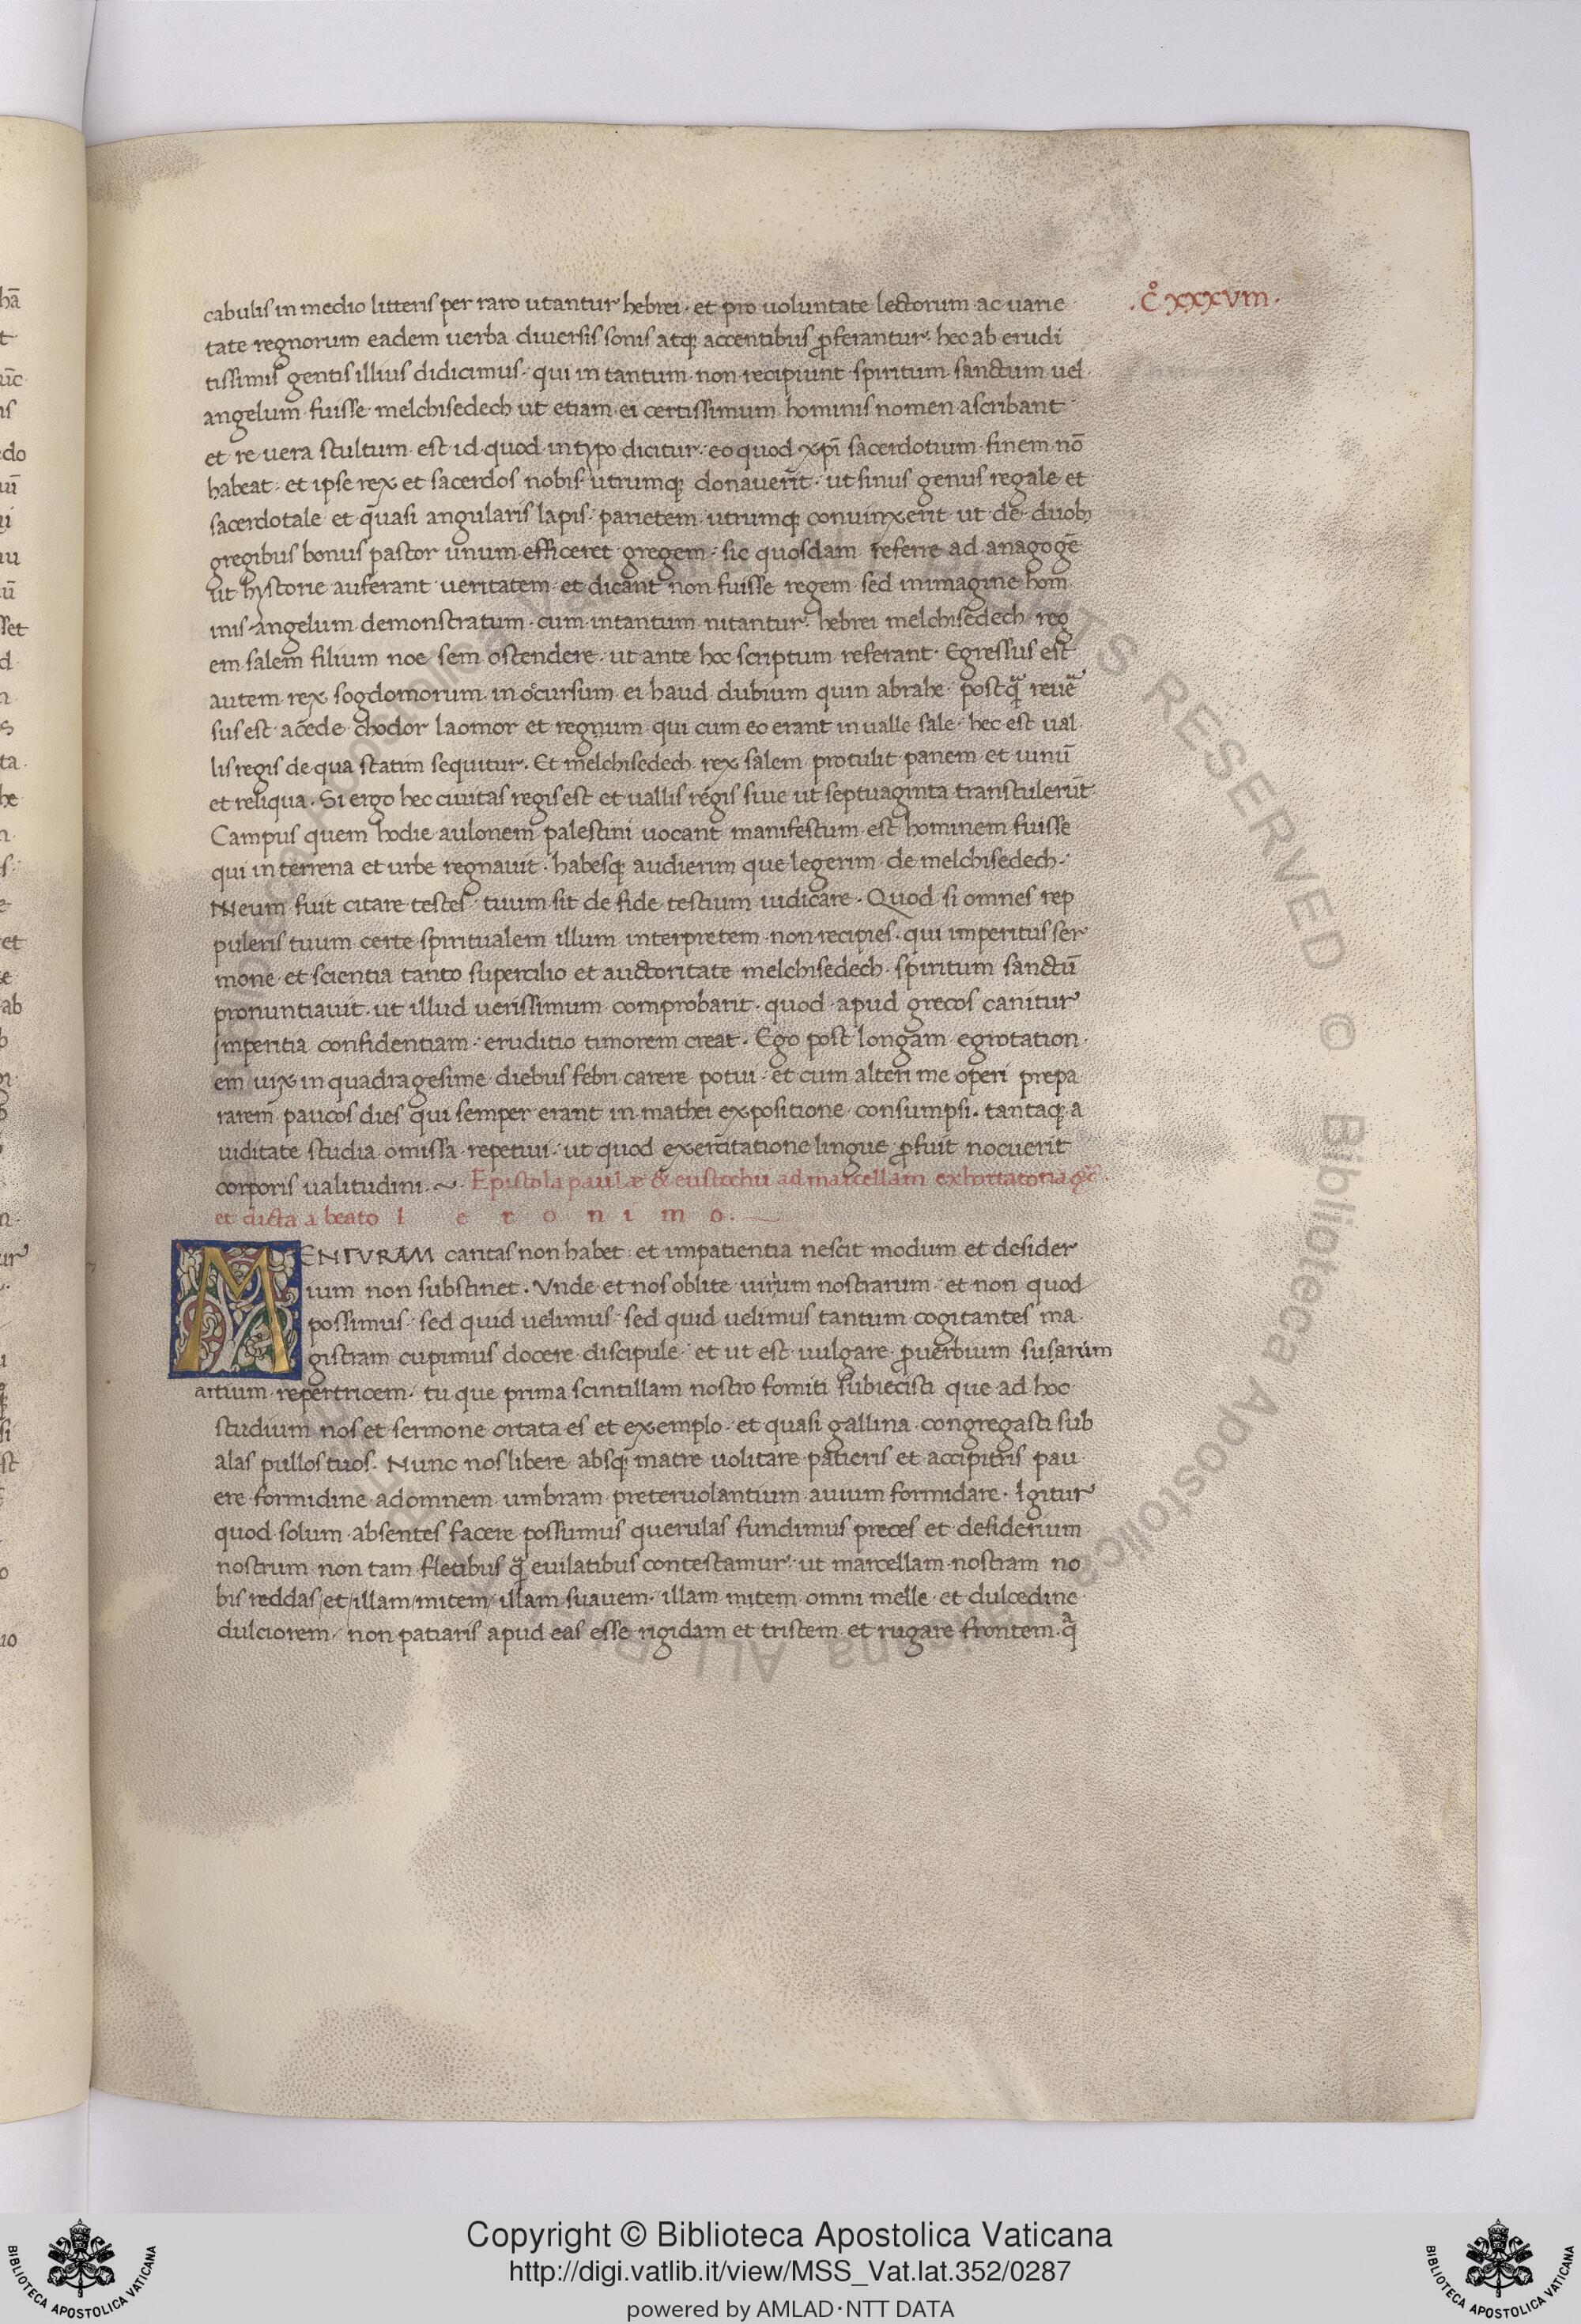 .C̊ xxxvııı.
cabulis in medio litteris per raro utantur hebrei · et pro uoluntate lectorum ac uarie
tate regnorum eadem uerba diuersis sonis atq; accentibus ꝓferantur · hec ab erudi
tissimis gentis illius didicimus · qui in tantum non recipiunt spiritum sanctum uel
angelum fuisse melchisedech ut etiam ei certissimum hominis nomen ascribant
et re uera stultum est id quod in typo dicitur · eo quod xp̄i sacerdotium finem nō
habeat · et ipse rex et sacerdos nobis utrumq; donauerit · ut simus genus regale et
sacerdotale et quasi angularis lapis parietem utrumq; conuinxerit ut de duob;
gregibus bonus pastor unum efficeret gregem · sic quosdam referre ad anagogē
ut hystorie auferant ueritatem et dicant non fuisse regem sed in imagine hom
inis angelum demonstratum · cum intantum nitantur hebrei melchisedech reg
em salem filium noe sem ostendere · ut ante hoc scriptum referant · Egressus est
autem rex sogdomorum in occursum ei haud dubium quin abrahe postq̄ reuē
sus est a cede chodor laomor et regnum qui cum eo erant in ualle sale · hec est ual
lis regis de qua statim sequitur . Et melchisedech rex salem protulit panem et uinū
et reliqua . Si ergo hec ciuitas regis est et uallis regis siue ut septuaginta transtulerūt
Campus quem hodie aulonem palestini uocant manifestum est hominem fuisse
qui in terrena et urbe regnauit · habesq; audierim que legerim de melchisedech ·
Meum fuit citare testes tuum sit de fide testium iudicare . Quod si omnes rep
puleris tuum certe spiritualem illum interpretem non recipies · qui imperitus ser
mone et scientia tanto supercilio et auctoritate melchisedech spiritum sanctū
pronuntiauit · ut illud uerissimum comprobarit · quod apud grecos canitur
imperitia confidentiam · eruditio timorem creat . Ego post longam egrotation
em uix in quadragesime diebus febri carere potui · et cum alteri me operi prepa
rarem paucos dies qui semper erant in mathei expositione consumpsi . tantaq; a
uiditate studia omissa repetiui · ut quod exercitatione lingue ꝓfuit nocuerit
corporis ualitudini . ~ Epistola paulæ & eustochii ad marcellam exhortatoria
et dicta a beato I e r o n i m o .
MENTVRAM caritas non habet · et impatientia nescit modum et desider
ium non substinet . Vnde et nos oblite uirium nostrarum · et non quod
possimus · sed quid uelimus · sed quid uelimus tantum cogitantes ma
gistram cupimus docere discipule · et ut est uulgare ꝓuerbium susarum
artium repertricem · tu que prima scintillam nostro fomiti subiecisti que ad hoc
studium nos et sermone ortata es et exemplo · et quasi gallina congregasti sub
alas pullos tuos . Nunc nos libere absq; matre uolitare patieris et accipitris pau
ere formidine ad omnem umbram preteruolantium auium formidare . Igitur
quod solum absentes facere possumus querulas fundimus preces et desiderium
nostrum non tam fletibus q̄ euilatibus contestamur · ut marcellam nostram no
bis reddas / et / illam / mitem / illam suauem · illam mitem omni melle et dulcedine
dulciorem / non patiaris apud eas esse rigidam et tristem et rugare frontem q̄
Copyright © Biblioteca Apostolica Vaticana
http://digi.vatlib.it/view/MSS_Vat.lat.352/0287
powered by AMLAD·NTT DATA
BIBLIOTECA APOSTOLICA VATICANA
BIBLIOTECA APOSTOLICA VATICANA